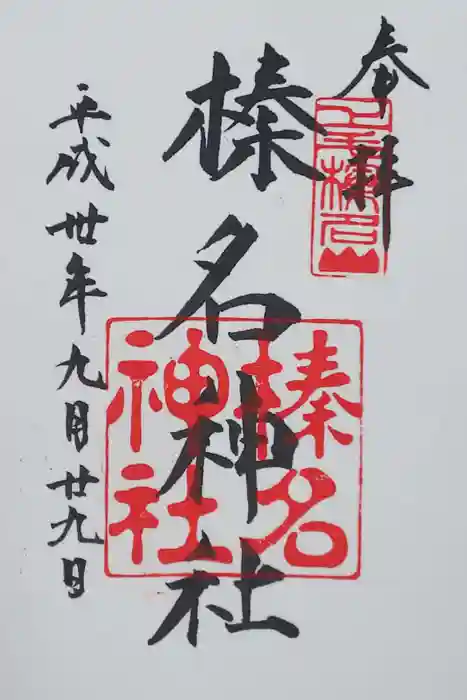 奉拝
榛名神社
榛名
神社
平成卅年九月廿九日